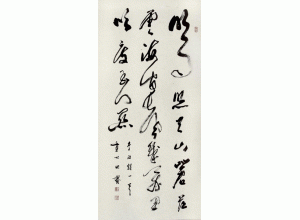 明月出天山蒼茫
雲海間長風幾萬里
吹度玉門關